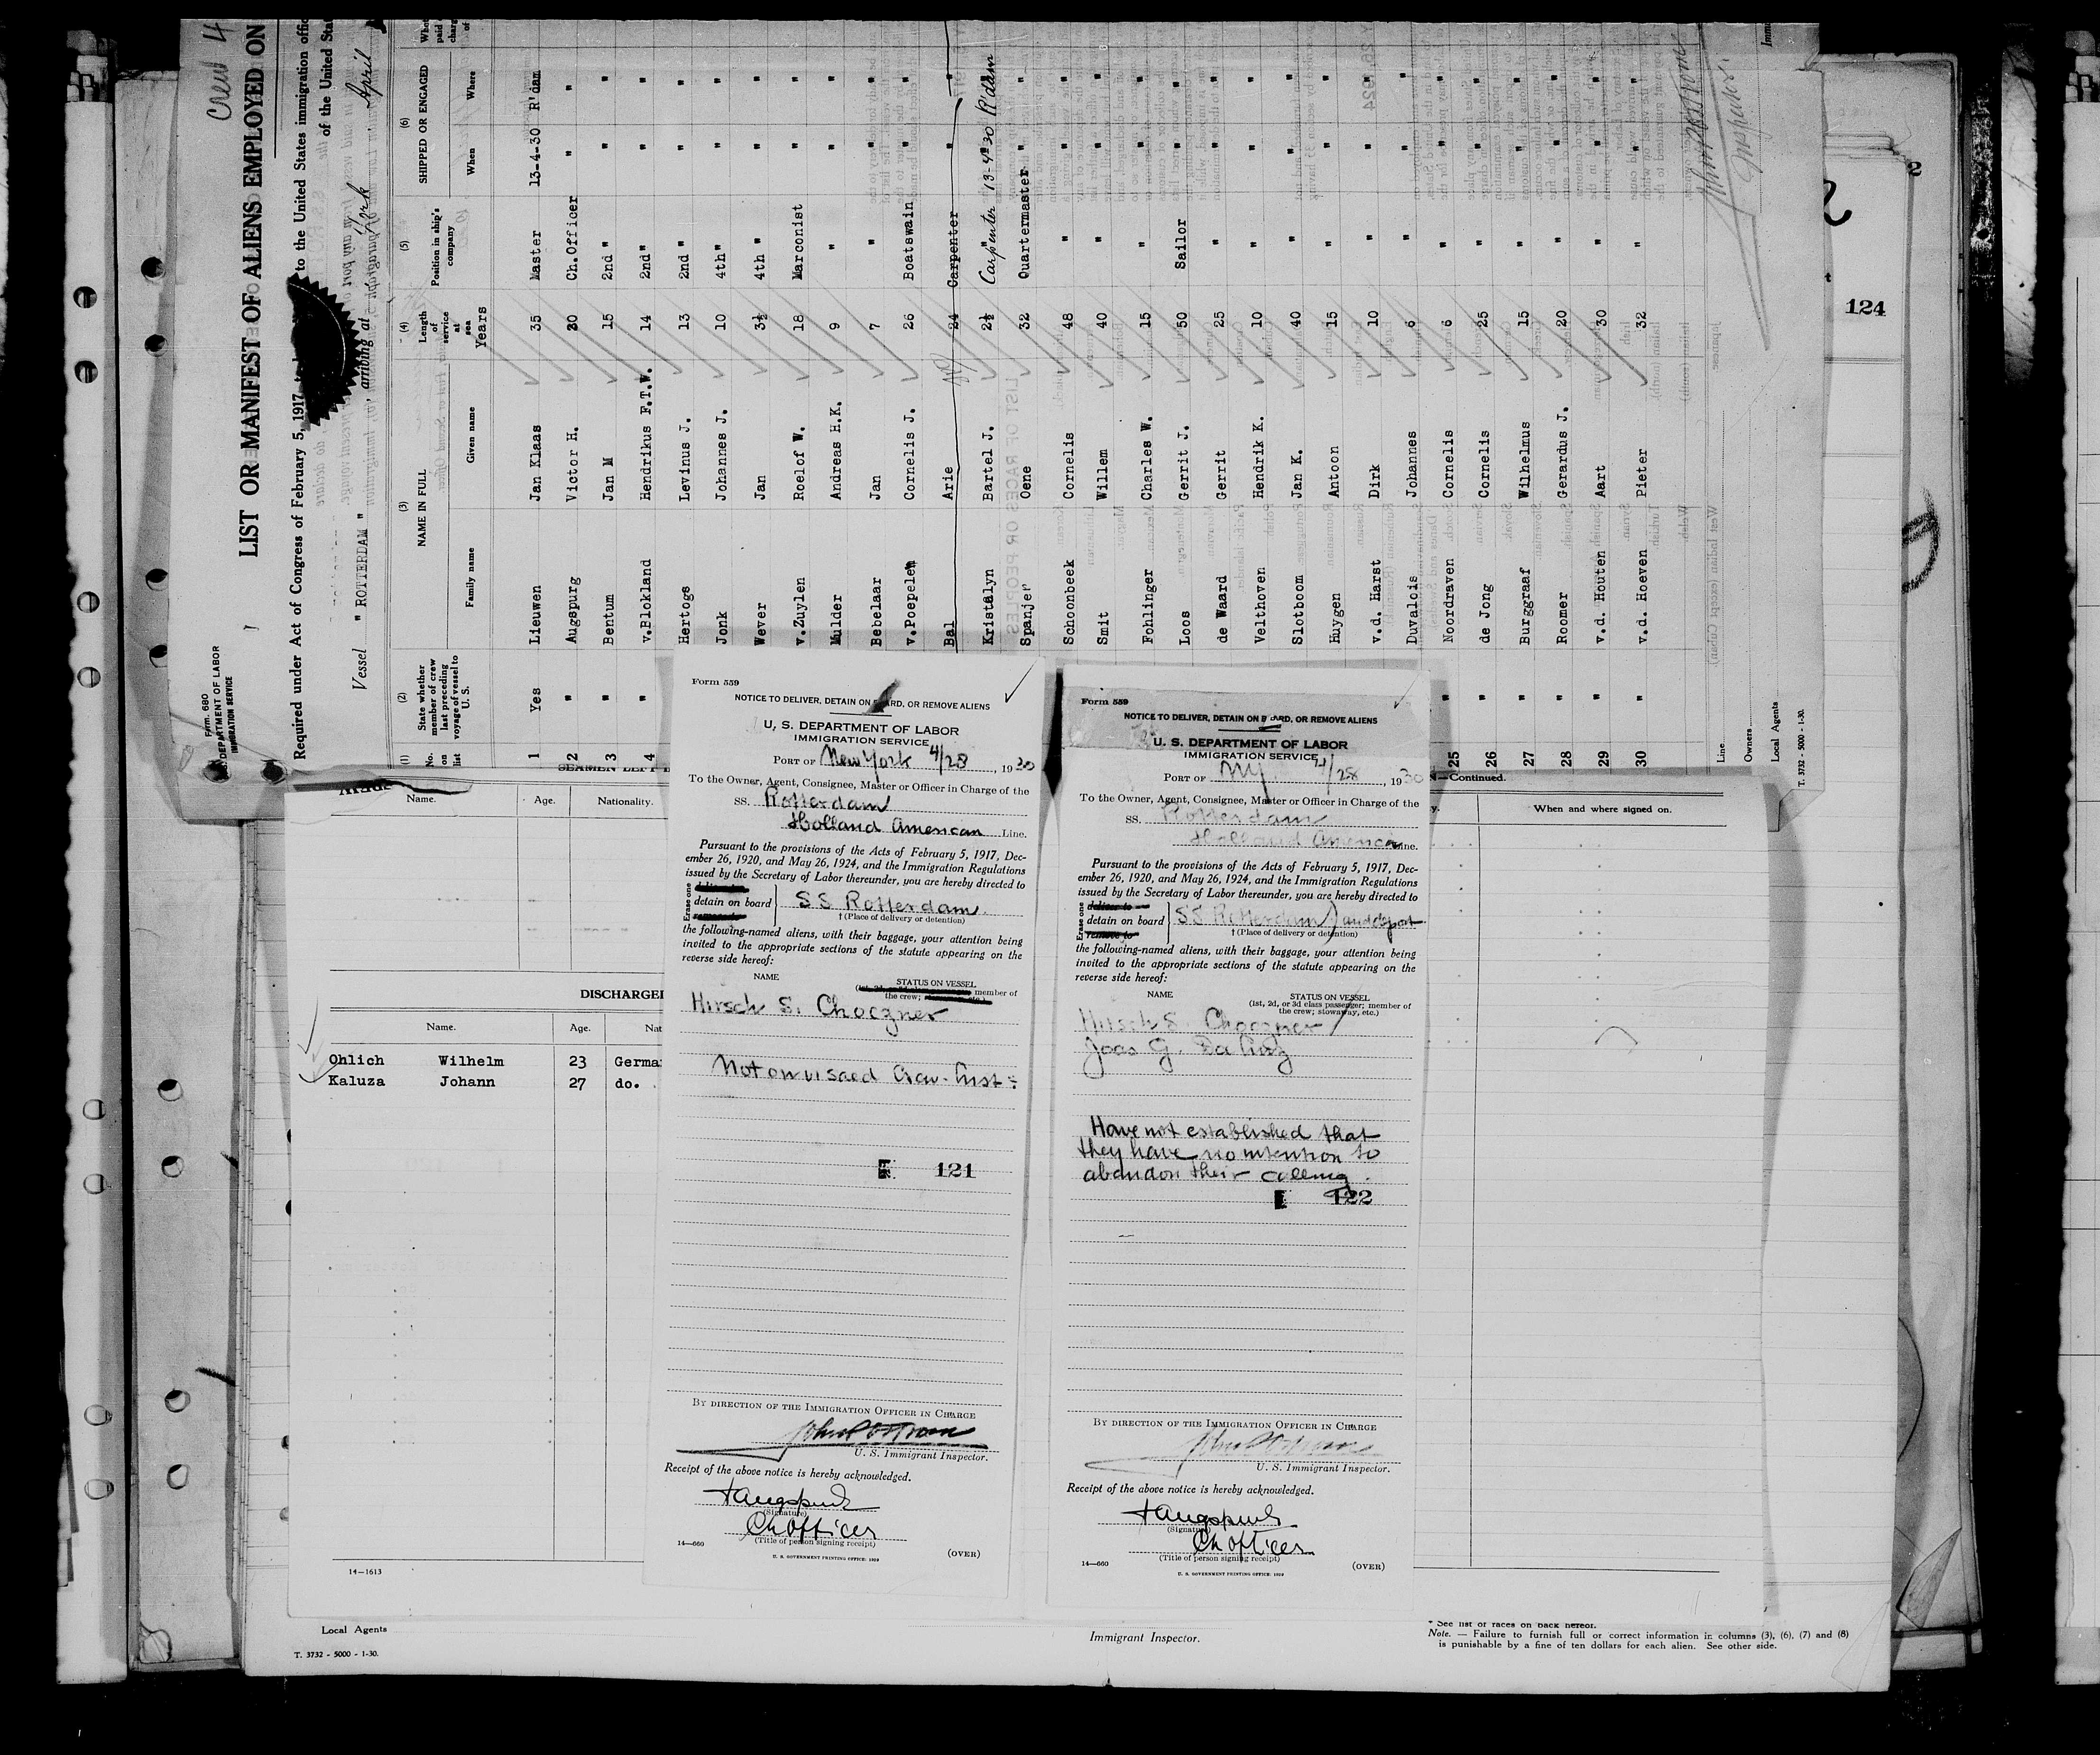 Crew 4
LIST OR MANIFEST OF ALIENS EMPLOYED ON
Form 680
DEPARTMENT OF LABOR
IMMIGRATION SERVICE
Required under Act of Congress of February 5, 1917, to the United States immigration
of the United
Vessel "ROTTERDAM" arriving at York April
(1) (2) (3) (4) (5) (6)
No. on list
State whether member of crew last preceding voyage of vessel to U. S.
NAME IN FULL
Family name Given name
Length of service at sea
Years
Position in ship's company
SHIPPED OR ENGAGED
When Where
1 Yes Lieuwen Jan Klaas 35 Master 13-4-30 R'dam
2 " Augspurg Victor H. 30 Ch.Officer " "
3 " Bentum Jan M 15 2nd " " "
4 " v.Blokland Hendrikus F.T.W. 14 2nd " " "
Hertogs Levinus J. 13 2nd " " "
Jonk Johannes J. 10 4th " " "
Wever Jan 3½ 4th " " "
v.Zuylen Roelof W. 18 Marconist " "
Mulder Andreas H.K. 9 " " "
Bebelaar Jan 7 " " "
v.Poepelen Cornelis J. 26 Boatswain " "
Bal Arie 24 Carpenter
Kristalyn Bartel J. 2½ Carpenter 13-4-30 R'dam
Spanjer Oene 32 Quartermaster " "
Schoonbeek Cornelis 48 " " "
Smit Willem 40 " " "
Fohlinger Charles W. 15 " " "
Loos Gerrit J. 50 Sailor " "
de Waard Gerrit 25 " " "
Velthoven Hendrik K. 10 " " "
Slotboom Jan K. 40 " " "
Huygen Antoon 15 " " "
v.d. Harst Dirk 10 " " "
Duvalois Johannes 6 " " "
25 " Noordraven Cornelis 6 " " "
26 " de Jong Cornelis 25 " " "
27 " Burggraaf Wilhelmus 15 " " "
28 " Roomer Gerardus J. 20 " " "
29 " v.d. Houten Aart 30 " " "
30 " v.d. Hoeven Pieter 32 " " "
Line
Owners
Local Agents
T. 3732 - 5000 - 1-30.
Inspector.
2
124
Name. Age. Nationality.
—Continued.
When and where signed on.
DISCHARGED
Name. Age.
Ohlich Wilhelm 23
Kaluza Johann 27 do.
14—1613
Form 559
NOTICE TO DELIVER, DETAIN ON BOARD, OR REMOVE ALIENS
U. S. DEPARTMENT OF LABOR
IMMIGRATION SERVICE
PORT OF New York 4/28, 1930
To the Owner, Agent, Consignee, Master or Officer in Charge of the
SS. Rotterdam
Holland American Line.
Pursuant to the provisions of the Acts of February 5, 1917, Dec-
ember 26, 1920, and May 26, 1924, and the Immigration Regulations
issued by the Secretary of Labor thereunder, you are hereby directed to
Erase one
detain on board SS Rotterdam
† (Place of delivery or detention)
the following-named aliens, with their baggage, your attention being
invited to the appropriate sections of the statute appearing on the
reverse side hereof:
NAME STATUS ON VESSEL
member of
the crew;
Hirsch S. Choczner
Not on visaed Crew List
121
BY DIRECTION OF THE IMMIGRATION OFFICER IN CHARGE
U. S. Immigrant Inspector.
Receipt of the above notice is hereby acknowledged.
(Signature)
Ch Officer
(Title of person signing receipt)
14—660
U. S. GOVERNMENT PRINTING OFFICE: 1929
(OVER)
Form 559
NOTICE TO DELIVER, DETAIN ON BOARD, OR REMOVE ALIENS
U. S. DEPARTMENT OF LABOR
IMMIGRATION SERVICE
PORT OF NY. 4/28, 1930
To the Owner, Agent, Consignee, Master or Officer in Charge of the
SS. Rotterdam
Holland American Line.
Pursuant to the provisions of the Acts of February 5, 1917, Dec-
ember 26, 1920, and May 26, 1924, and the Immigration Regulations
issued by the Secretary of Labor thereunder, you are hereby directed to
Erase one
deliver to
detain on board SS Rotterdam and deport
remove to
† (Place of delivery or detention)
the following-named aliens, with their baggage, your attention being
invited to the appropriate sections of the statute appearing on the
reverse side hereof:
NAME STATUS ON VESSEL
(1st, 2d, or 3d class passenger; member of
the crew; stowaway, etc.)
Hirsch S. Choczner
Joas G. Da Cruz
Have not established that
they have no intention to
abandon their calling.
122
BY DIRECTION OF THE IMMIGRATION OFFICER IN CHARGE
U. S. Immigrant Inspector.
Receipt of the above notice is hereby acknowledged.
(Signature)
Ch Officer
(Title of person signing receipt)
14—660
U. S. GOVERNMENT PRINTING OFFICE: 1929
(OVER)
Local Agents
T. 3732 - 5000 - 1-30.
Immigrant Inspector.
* See list of races on back hereof.
Note. — Failure to furnish full or correct information in columns (3), (6), (7) and (8)
is punishable by a fine of ten dollars for each alien. See other side.